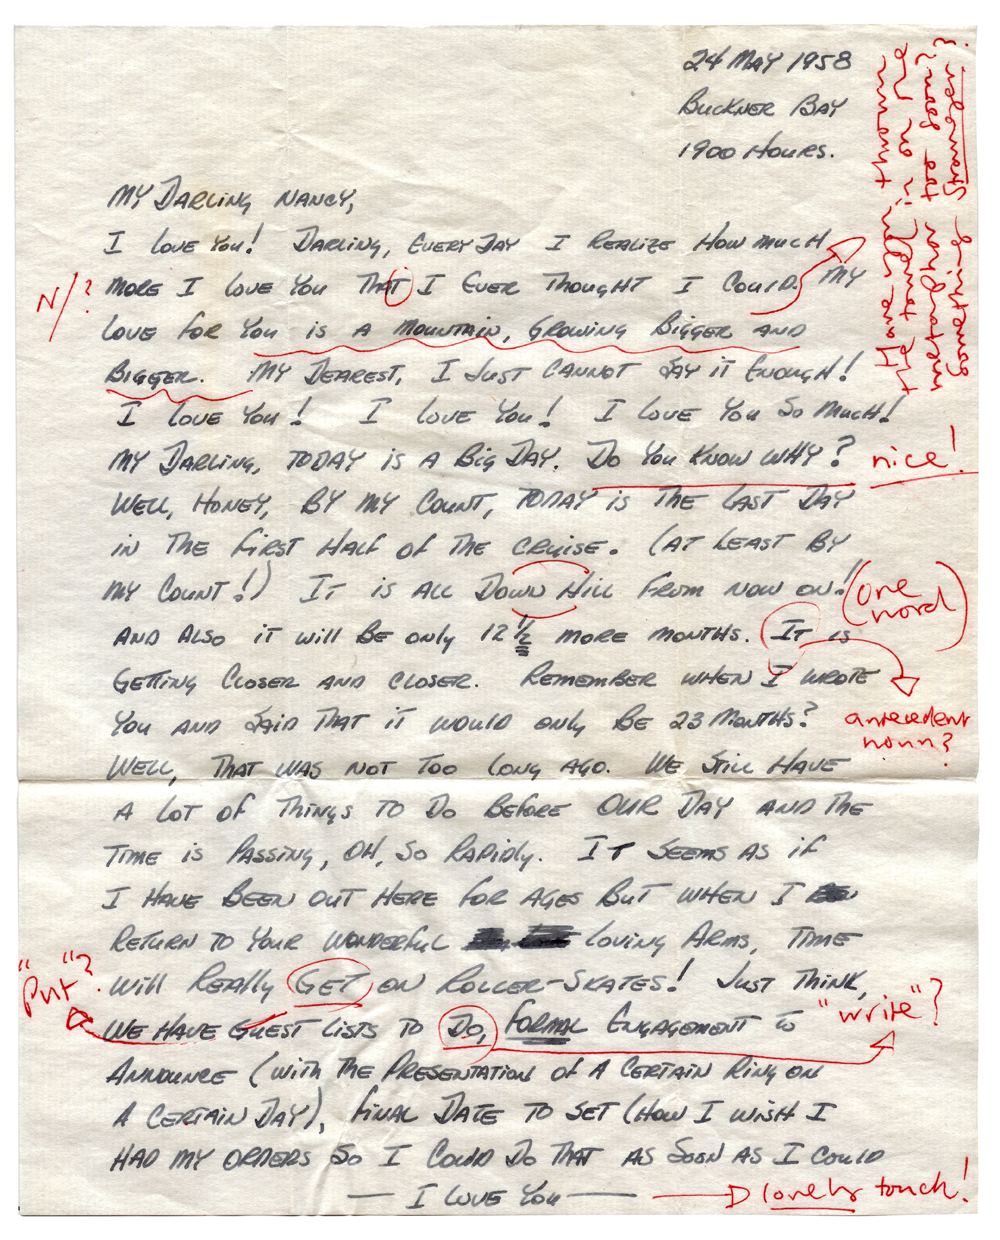 24 MAY 1958
BUCKNER BAY
1900 HOURS.
MY DARLING NANCY,
I LOVE YOU! DARLING, EVERY DAY I REALIZE HOW MUCH
N/?
MORE I LOVE YOU THAT I EVER THOUGHT I COULD. MY
LOVE FOR YOU IS A MOUNTAIN, GROWING BIGGER AND
BIGGER. MY DEAREST, I JUST CANNOT SAY IT ENOUGH!
I LOVE YOU! I LOVE YOU! I LOVE YOU SO MUCH!
MY DARLING, TODAY IS A BIG DAY. DO YOU KNOW WHY?
nice!
WELL, HONEY, BY MY COUNT, TODAY IS THE LAST DAY
IN THE FIRST HALF OF THE CRUISE. (AT LEAST BY
MY COUNT!) IT IS ALL DOWN HILL FROM NOW ON!
(one
word)
AND ALSO IT WILL BE ONLY 12 1/2 MORE MONTHS. IT IS
GETTING CLOSER AND CLOSER. REMEMBER WHEN I WROTE
YOU AND SAID THAT IT WOULD ONLY BE 23 MONTHS?
antecedent
noun?
WELL, THAT WAS NOT TOO LONG AGO. WE STILL HAVE
A LOT OF THINGS TO DO BEFORE OUR DAY AND THE
TIME IS PASSING, OH, SO RAPIDLY. IT SEEMS AS IF
I HAVE BEEN OUT HERE FOR AGES BUT WHEN I
RETURN TO YOUR WONDERFUL LOVING ARMS, TIME
WILL REALLY GET ON ROLLER-SKATES! JUST THINK,
"Put"?
WE HAVE GUEST LISTS TO DO, FORMAL ENGAGEMENT TO
"write"?
ANNOUNCE (WITH THE PRESENTATION OF A CERTAIN RING ON
A CERTAIN DAY), FINAL DATE TO SET (HOW I WISH I
HAD MY ORDERS SO I COULD DO THAT AS SOON AS I COULD
— I LOVE YOU —
lovely touch!